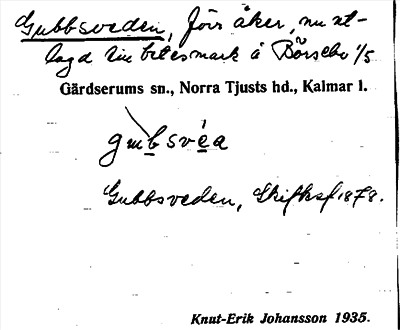 Gubbsveden, förr åker, nu ut-
lagd till betesmark å Börsebo 1/5
Gärdserums sn., Norra Tjusts hd., Kalmar l.
gubsvéa
Gubbsveden, Skifksf 1878.
Knut-Erik Johansson 1935.